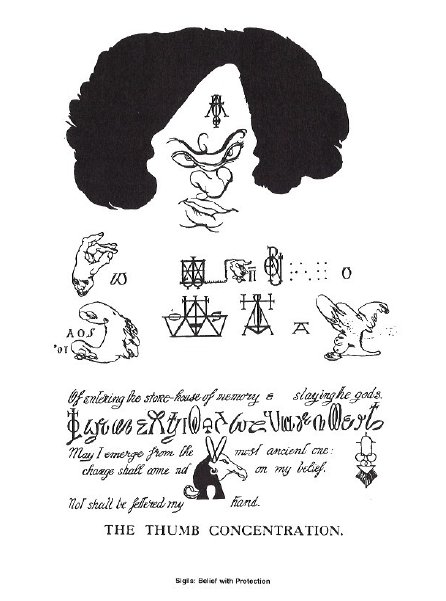 AOS
'01
Of entering the store-house of memory & slaying the gods.
May I emerge from the most ancient one:
change shall come nd on my belief.
Not shall be fettered my hand.
THE THUMB CONCENTRATION.
Sigils: Belief with Protection